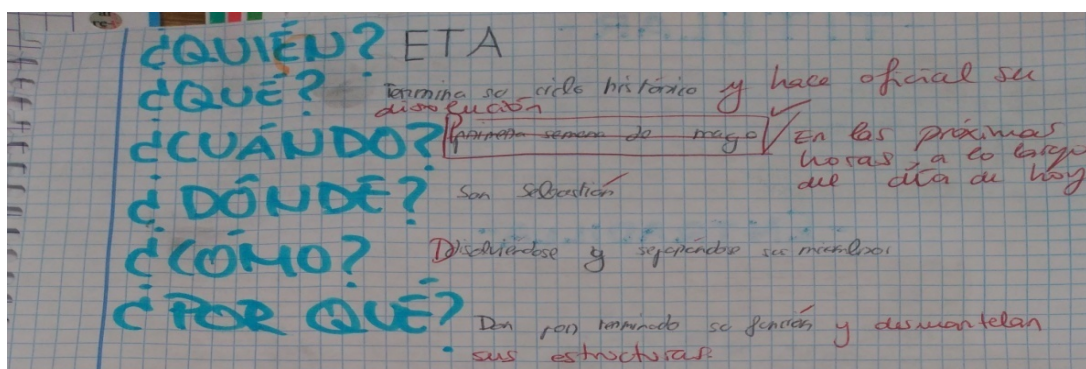 ¿QUIÉN? ETA
¿QUÉ? Termina su ciclo histórico y hace oficial su
disolución
¿CUÁNDO? primera semana de mayo En las próximas
horas, a lo largo
del día de hoy
¿DÓNDE? San Sebastián
¿CÓMO? Disolviéndose y separándose sus miembros
¿POR QUÉ? Dan por terminado su función y desmantelan
sus estructuras.